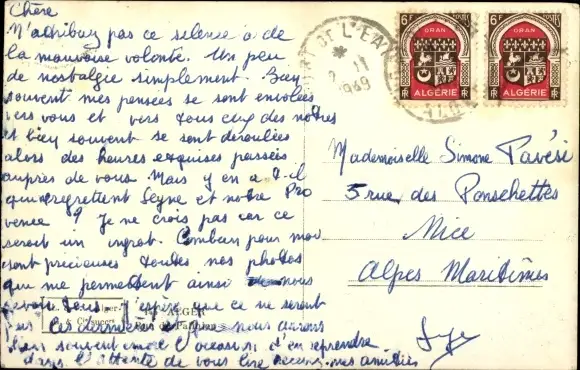 Chère
N'attribuez pas ce silence à de
la mauvaise volonté. Un peu
de nostalgie simplement. Bien
souvent mes pensées se sont envolées
vers vous et vers tous ceux des nôtres
et bien souvent se sont déroulées
alors des heures exquises passées
auprès de vous. Mais y en a t-il
qui regrettent Seyne et notre Pro
vence ? Je ne crois pas car ce
serait un ingrat. Combien pour moi
sont précieuses toutes nos photos
qui me permettent ainsi de nous
revoir tous. J'espère que ce ne seront
pas les dernières et que nous aurons
bien souvent encore l'occasion d'en reprendre
dans l'attente de vous lire recevez mes amitiés
ALGER
6F POSTES
ORAN
ALGÉRIE
RF
6F POSTES
ORAN
ALGÉRIE
RF
DE L'EAU
2 11
1949
Mademoiselle Simone Pavési
5 rue des Ponchettes
Nice
Alpes Maritimes